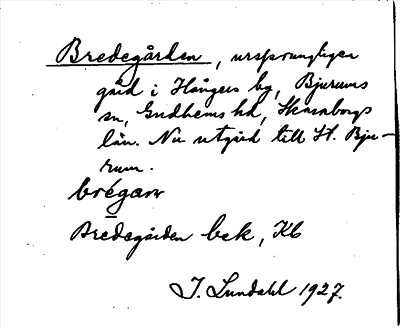 Bredegården, ursprungligen
gård i Hångers by, Bjurums
sn, Gudhems hd, Skaraborgs
län. Nu utgård till St. Bju-
rum.
brégaɷ
Bredegården bek, Kb
I. Lundahl 1927.